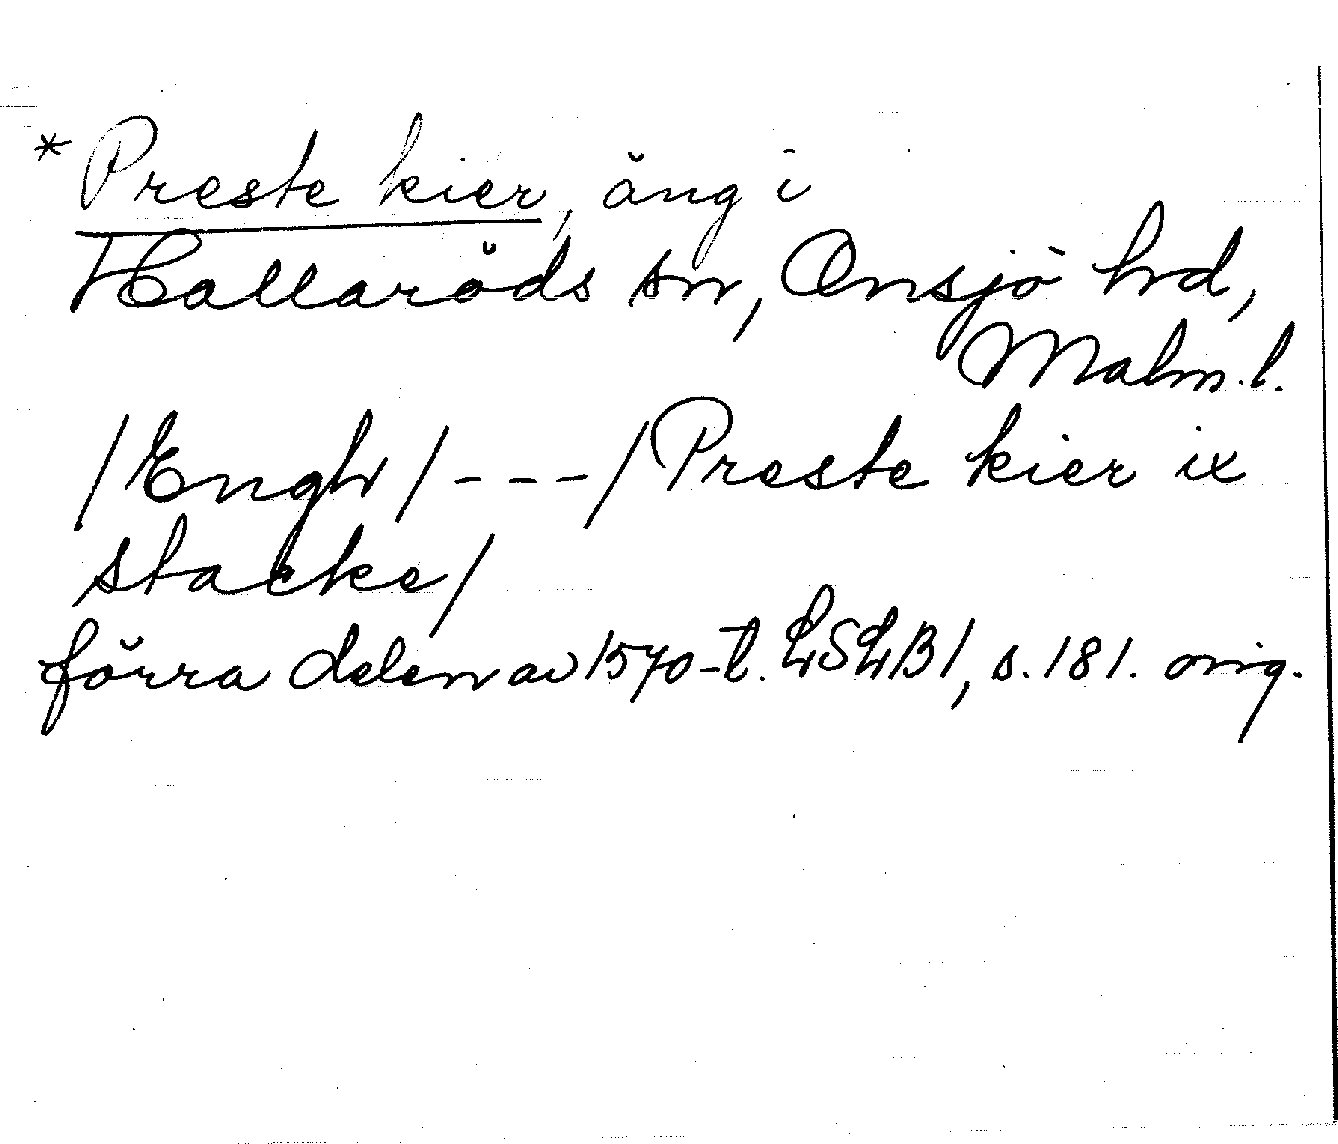 * Preste kier, äng i
Hallaröds sn, Onsjö hrd,
Malm. l.
/Engh/ - - - /Preste kier ix
stacke/
förra delen av 1570-t. LSLB1, s. 181. orig.